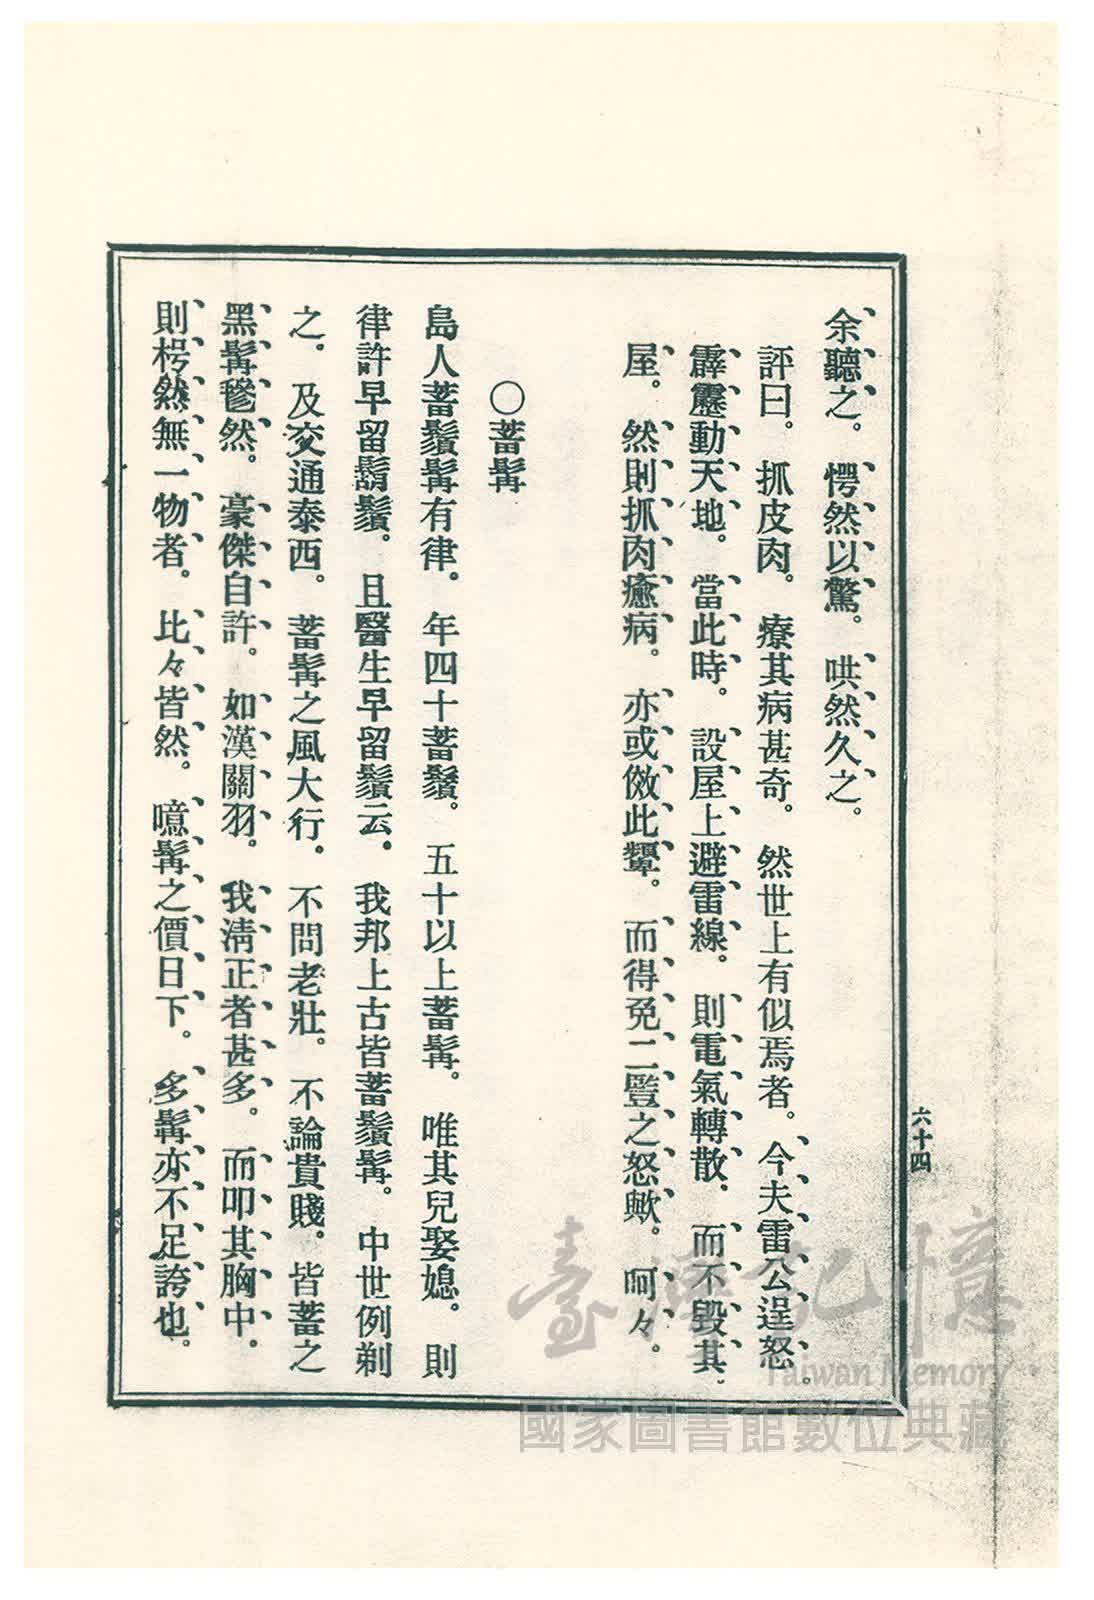 余聽之。愕然以驚。哄然久之。
評曰。抓皮肉。療其病甚奇。然世上有似焉者。今夫雷公逞怒。
霹靂動天地。當此時。設屋上避雷線。則電氣轉散。而不毀其
屋。然則抓肉癒病。亦或傚此顰。而得免二豎之怒歟。呵々。
○蓄髯
島人蓄鬚髯有律。年四十蓄鬚。五十以上蓄髯。唯其兒娶媳。則
律許早留鬍鬚。且醫生早留鬚云。我邦上古皆蓄鬚髯。中世例剃
之。及交通泰西。蓄髯之風大行。不問老壯。不論貴賤。皆蓄之
黑髯毿然。豪傑自許。如漢關羽。我淸正者甚多。而叩其胸中。
則枵然無一物者。比々皆然。噫髯之價日下。多髯亦不足誇也。
六十四
臺灣記憶
Taiwan Memory
國家圖書館數位典藏